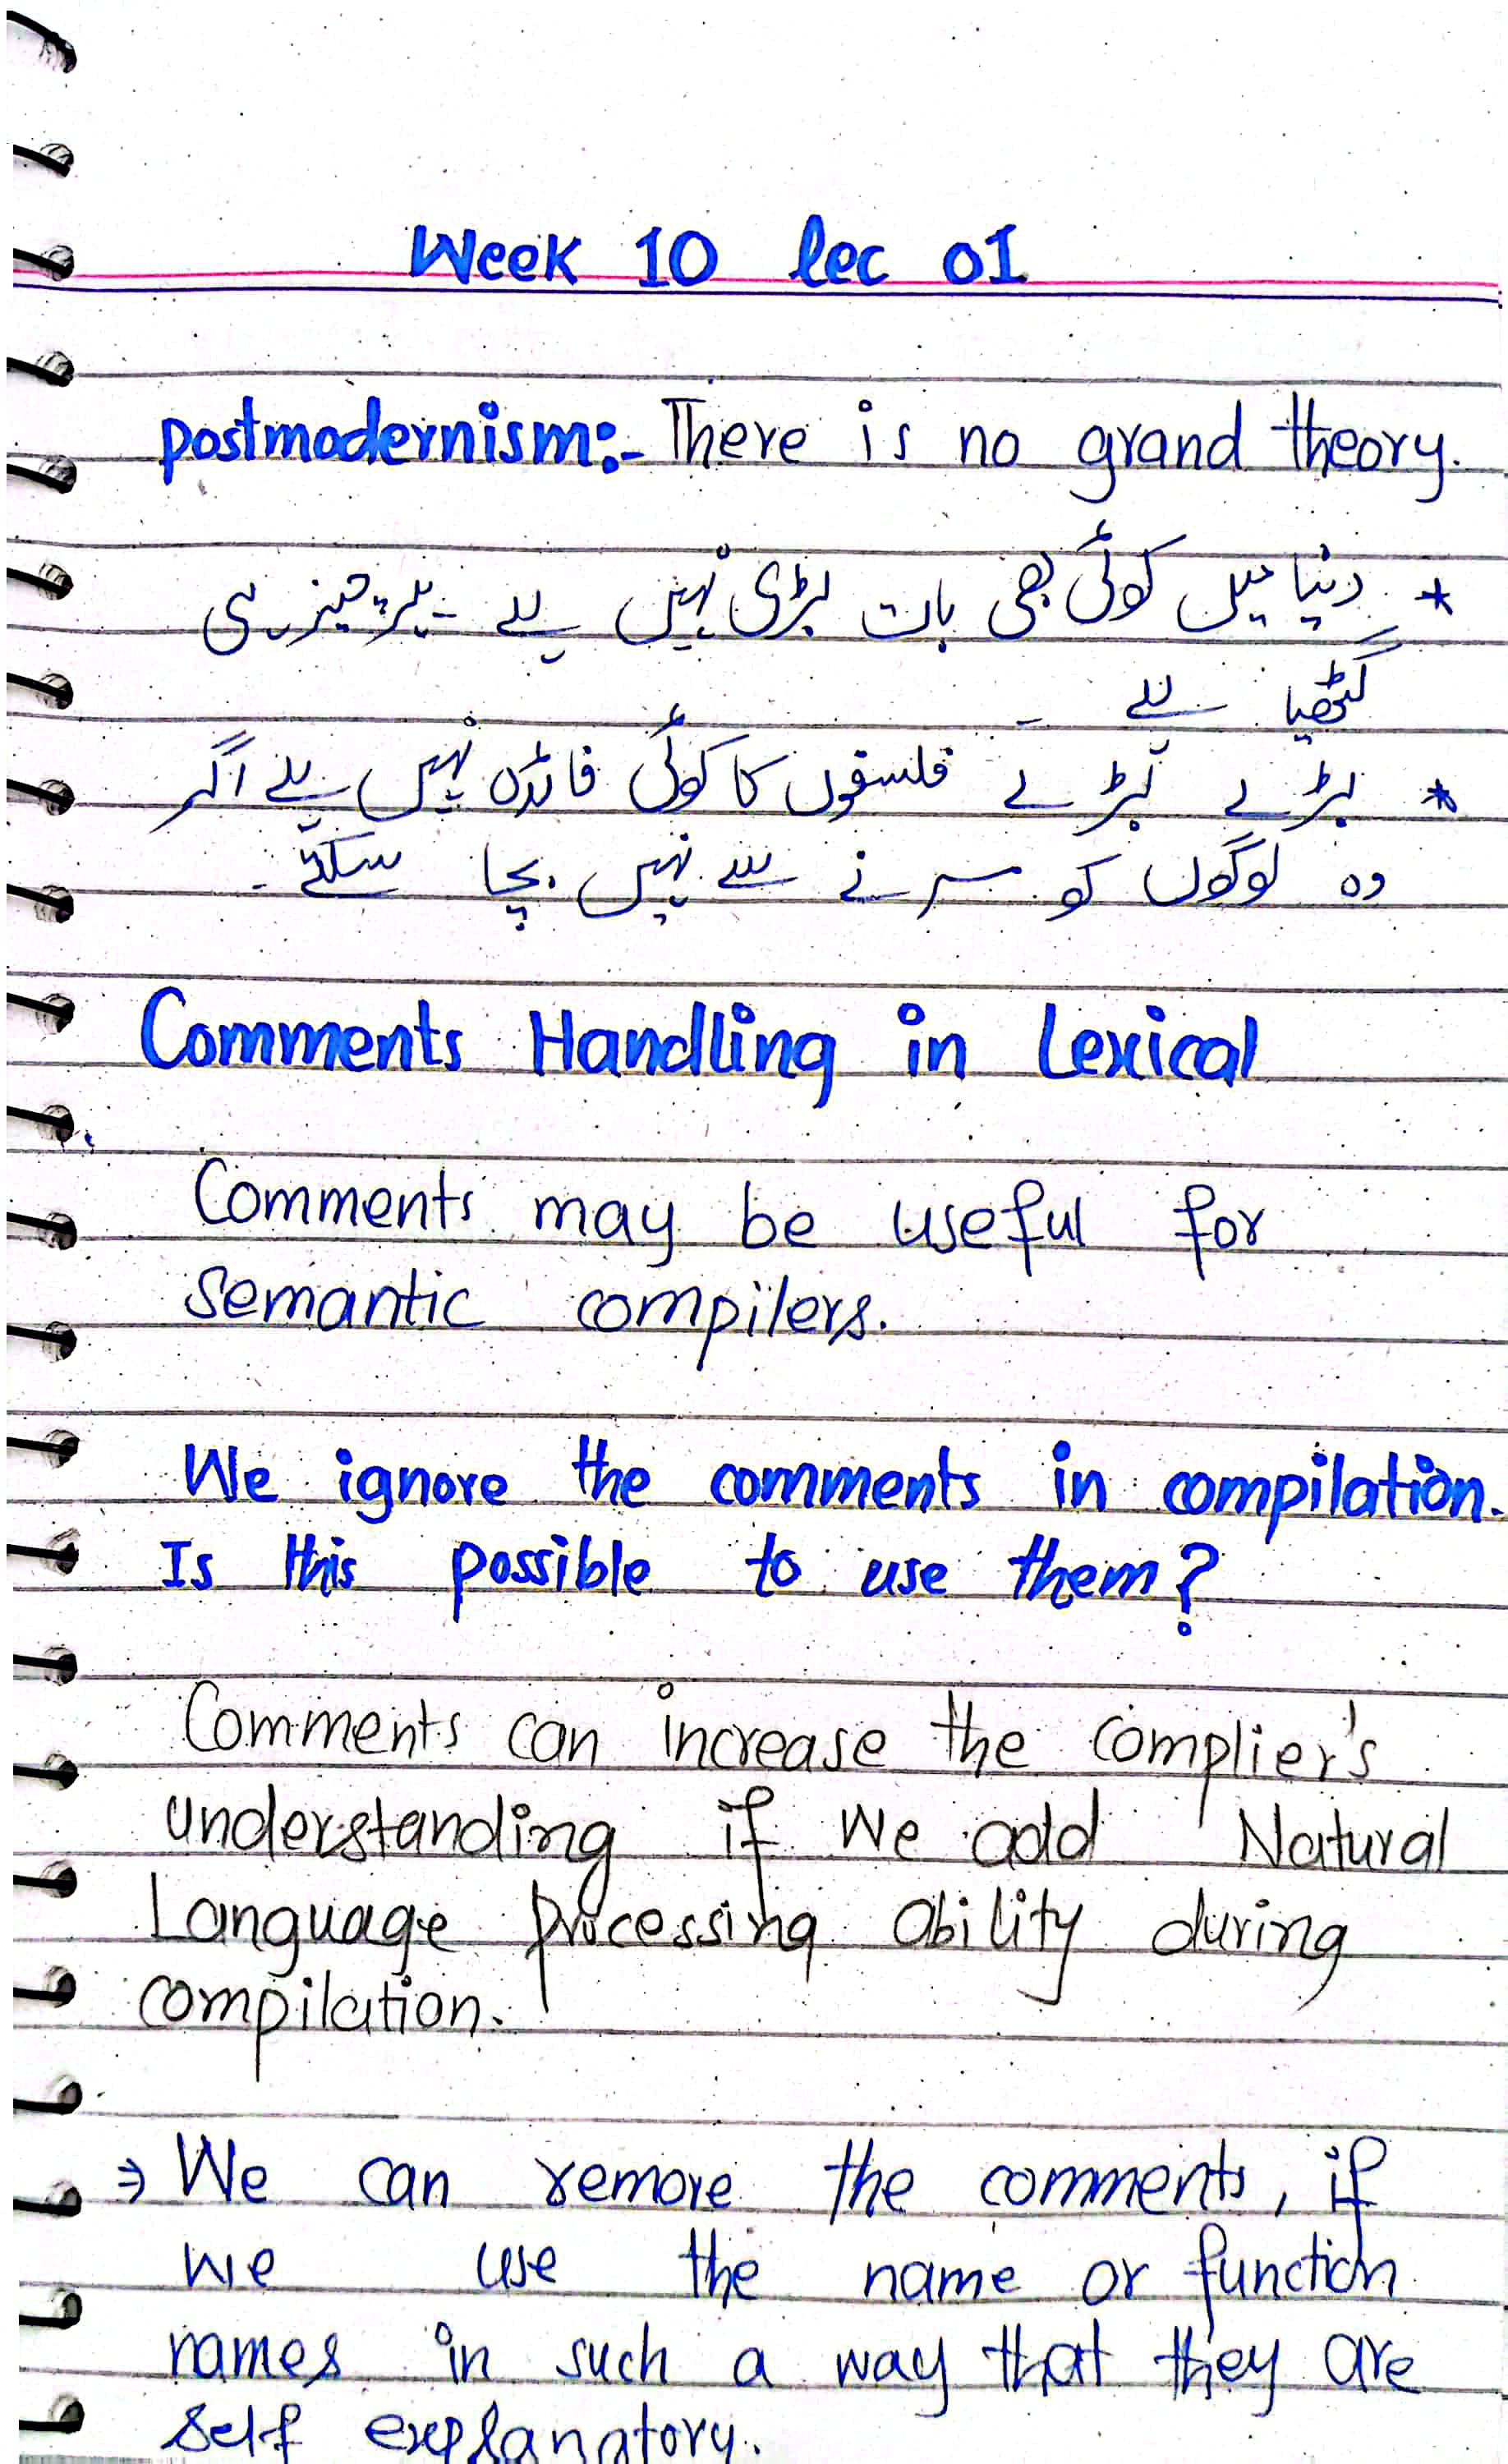 Week 10 lec 01
postmodernism:- There is no grand theory.
* دنیا میں کوئی بھی بات بڑی نہیں ہے ۔ ہر چیز ہی
گٹھیا ہے ۔
* بڑے بڑے فلسفوں کا کوئی فائدہ نہیں ہے اگر
وہ لوگوں کو مرنے سے نہیں بچا سکتے ۔
Comments Handling in Lexical
Comments may be useful for
semantic compilers.
We ignore the comments in compilation.
Is this possible to use them?
Comments can increase the complier's
understanding if we add Natural
Language processing ability during
compilation.
⇒ We can remove the comments, if
we use the name or function
names in such a way that they are
self explanatory.